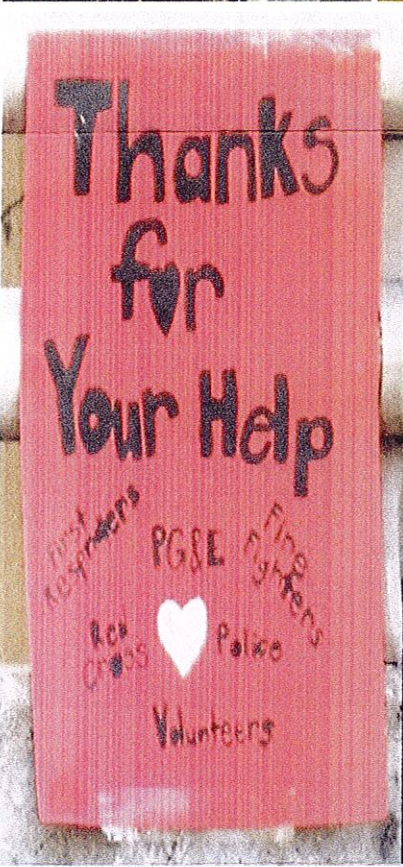 Thanks
for
Your Help
First
Responders
PG&E
Fire
Fighters
Red
Cross
Police
Volunteers